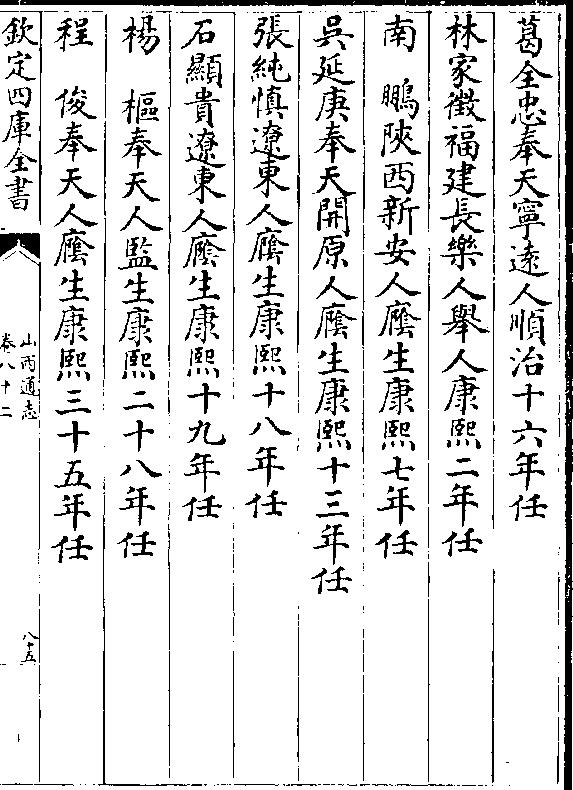 葛全忠奉天寧遠人順治十六年任
林家徵福建長樂人舉人康熙二年任
南　鵬陜西新安人廕生康熙七年任
吳延庚奉天開原人廕生康熙十三年任
張純慎遼東人廕生康熙十八年任
石顯貴遼東人廕生康熙十九年任
楊　樞奉天人監生康熙二十八年任
程　俊奉天人廕生康熙三十五年任
欽定四庫全書
山西通志
卷八十二
八十五